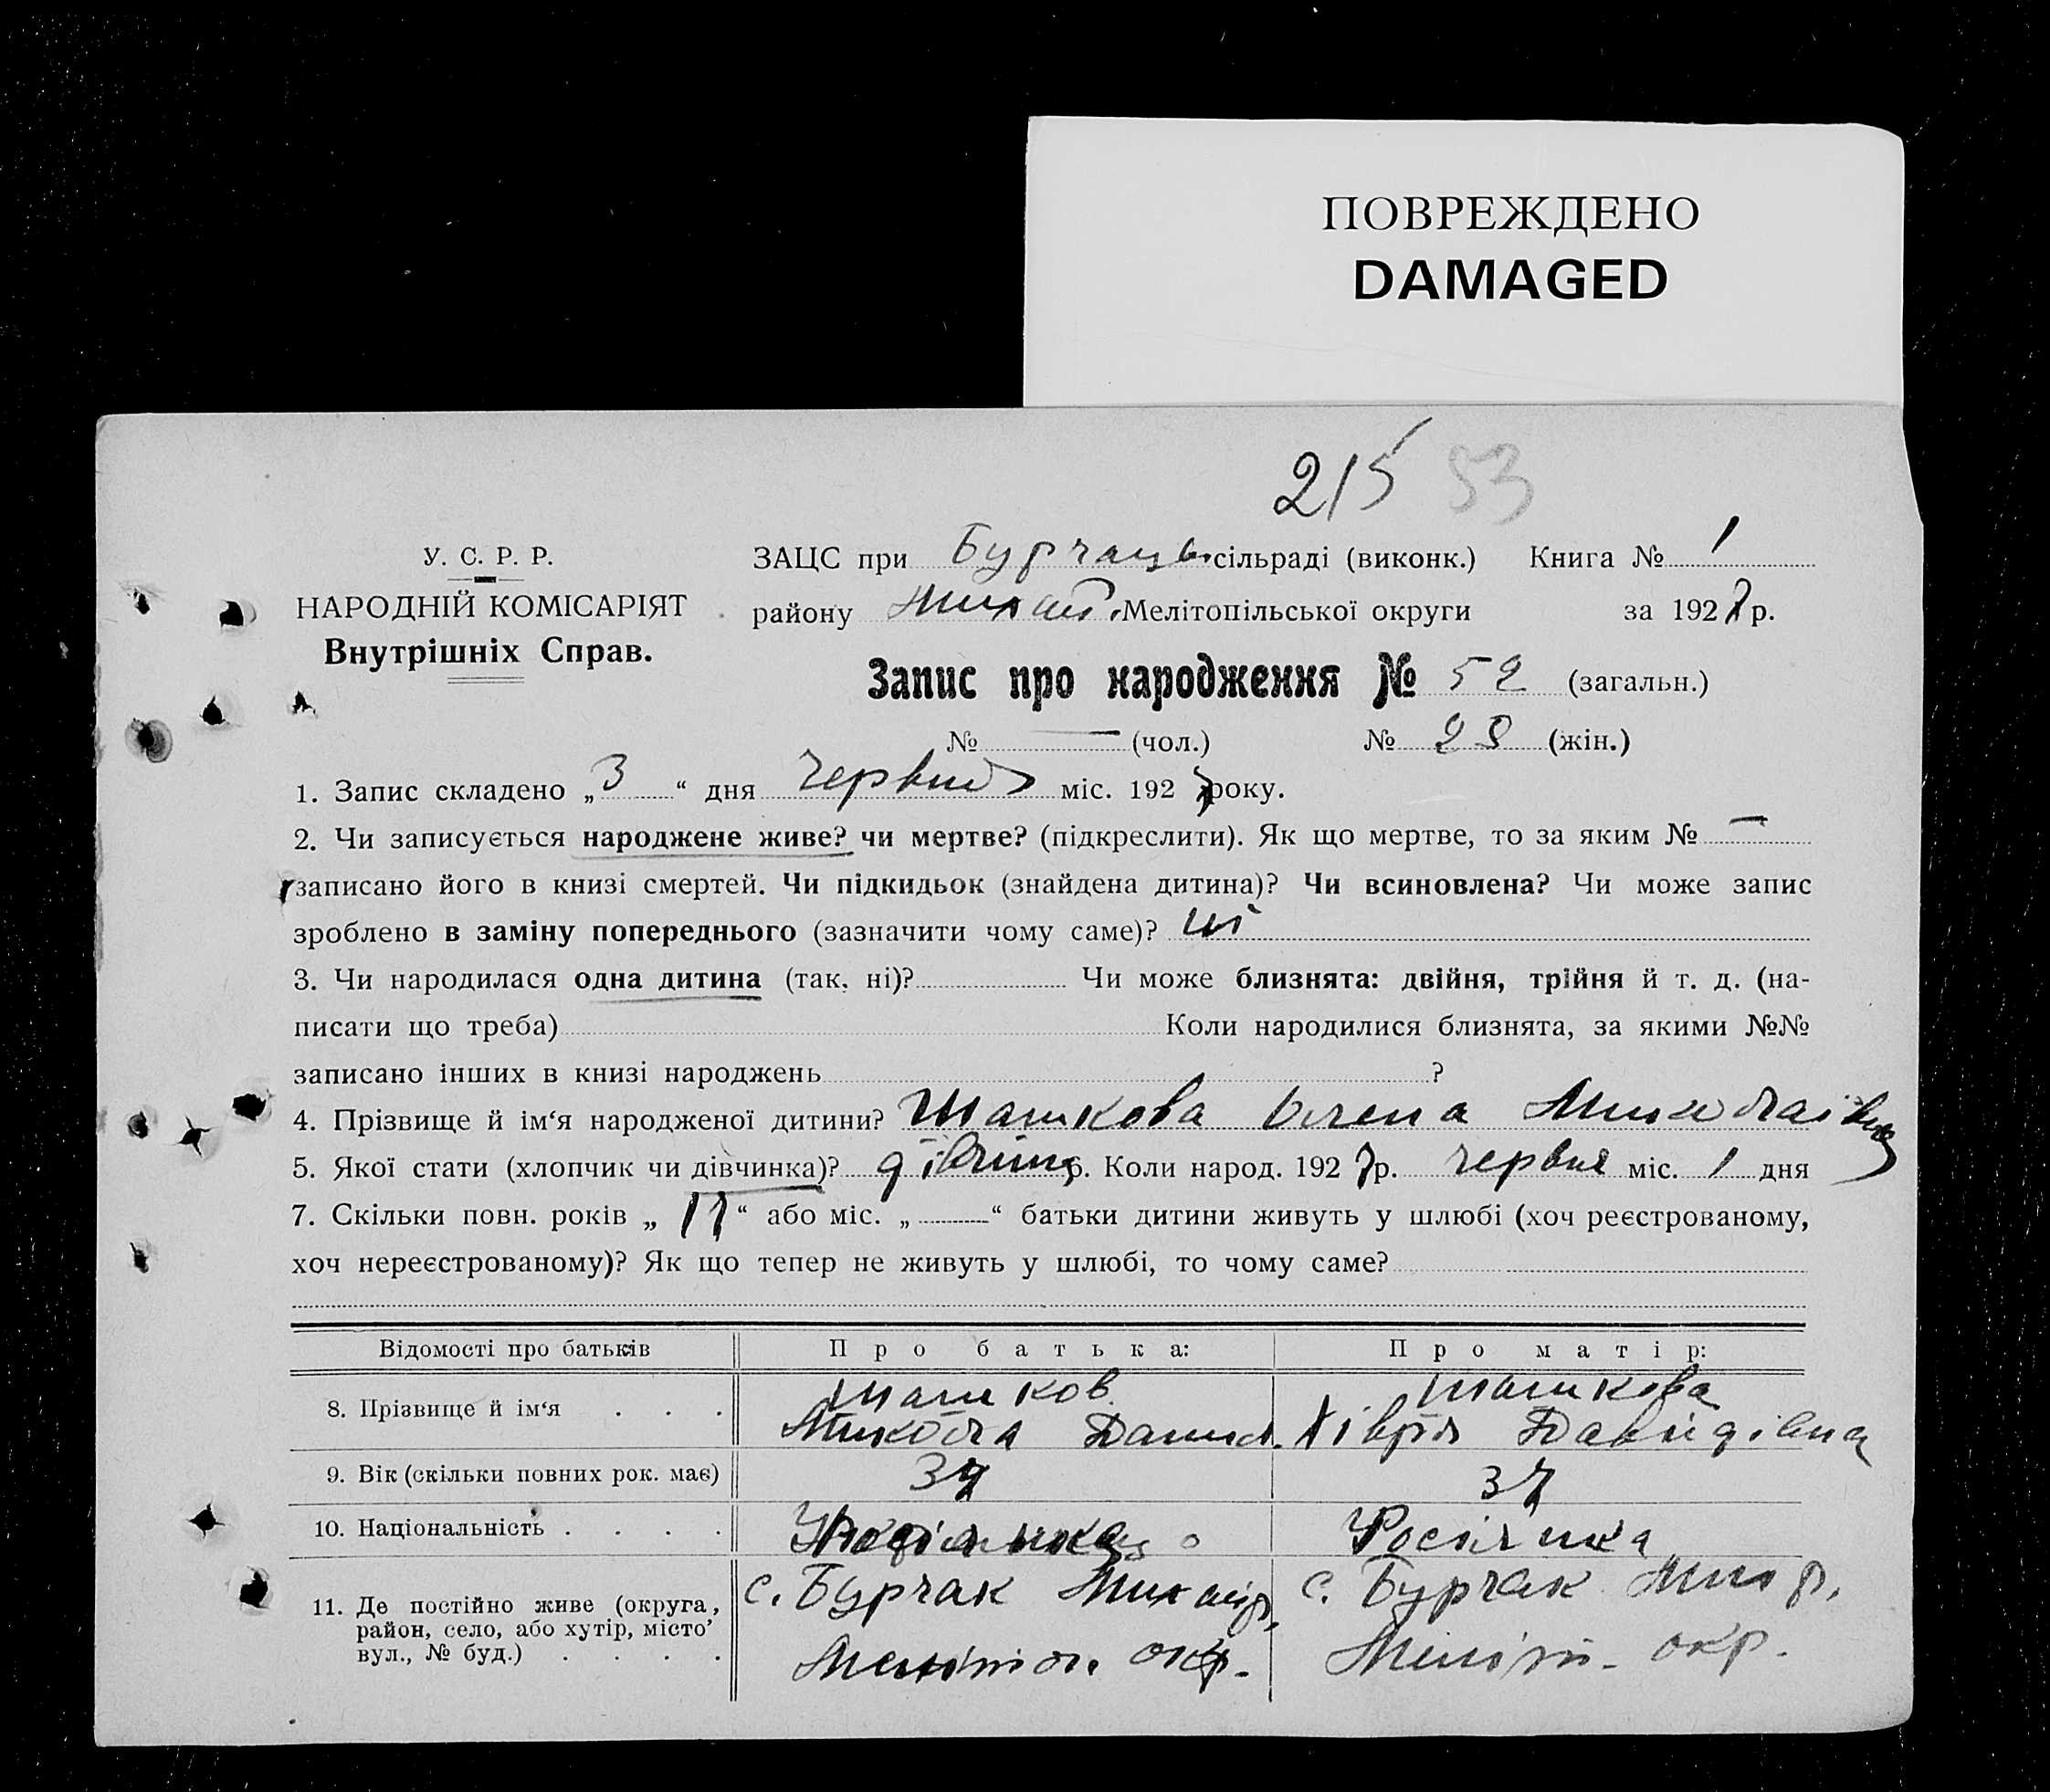 ПОВРЕЖДЕНО
DAMAGED
215 53
У. С. Р. Р.
НАРОДНІЙ КОМІСАРІЯТ
Внутрішніх Справ.
ЗАЦС при Бурчацьк. сільраді (виконк.) Книга № 1
району Михайл. Мелітопільської округи за 1927 р.
Запис про народження № 52 (загальн.)
№ — (чол.) № 28 (жін.)
1. Запис складено „ 3 “ дня червня міс. 1927 року.
2. Чи записується народжене живе? чи мертве? (підкреслити). Як що мертве, то за яким № —
записано його в книзі смертей. Чи підкидьок (знайдена дитина)? Чи всиновлена? Чи може запис
зроблено в заміну попереднього (зазначити чому саме)? ні
3. Чи народилася одна дитина (так, ні)? Чи може близнята: двійня, трійня й т. д. (на-
писати що треба) Коли народилися близнята, за якими №№
записано інших в книзі народжень ?
4. Прізвище й ім‘я народженої дитини? Машкова Олена Миколаівна
5. Якої стати (хлопчик чи дівчинка)? дівчина 6. Коли народ. 1927 р. червня міс. 1 дня
7. Скільки повн. років „ 17 “ або міс. „ “ батьки дитини живуть у шлюбі (хоч реєстрованому,
хоч нереєстрованому)? Як що тепер не живуть у шлюбі, то чому саме?
Відомості про батьків Про батька: Про матір:
8. Прізвище й ім‘я . . . Машков Микола Данил. Машкова Давидівна
9. Вік (скільки повних рок. має) 37 37
10. Національність . . . . Росіянка
11. Де постійно живе (округа, район, село, або хутір, місто’ вул., № буд.) . . . . с. Бурчак Михайл. р. Мелітоп. окр. с. Бурчак Мих. р. Меліт. окр.